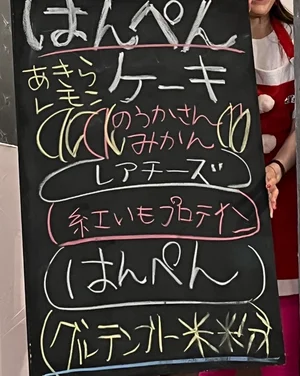 はんぺん
ケーキ
あきら
レモン
のうかさん
みかん
レアチーズ
紅いもプロテイン
はんぺん
グルテンフリー米粉